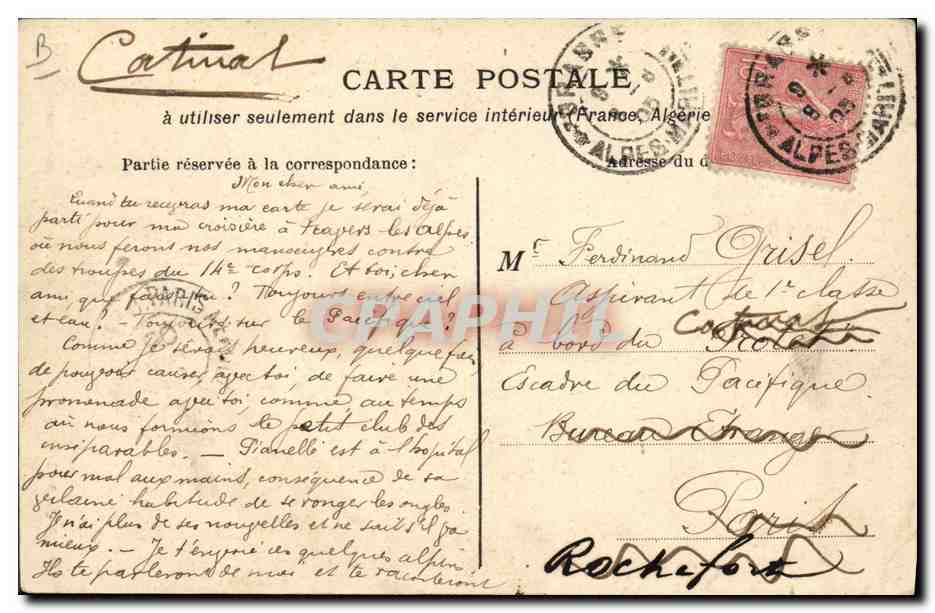 B
Catinat
CARTE POSTALE
à utiliser seulement dans le service intérieur (France, Algérie
Partie réservée à la correspondance :
Adresse du d
ALPES MARIT
ALPES-MARIT
10
PARIS
Mon cher ami
Quand tu recevras ma carte je serai déjà
parti pour ma croisière à travers les Alpes
où nous ferons nos manoeuvres contre
des troupes du 14e corps. Et toi cher
ami que fais-tu ? Toujours entre ciel
et eau ? - Toujours sur le Pacifique ?
Comme je serais heureux, quelquefois
de pouvoir causer avec toi, de faire une
promenade avec toi, comme au temps
où nous formions le petit club des
inséparables. - Pianelle est à l'hôpital
pour mal aux mains, conséquence de sa
vilaine habitude de se ronger les ongles
Je n'ai plus de ses nouvelles et ne sais s'il va
mieux. - Je t'envoie ces quelques alpins
Ils te parleront de moi et te raconteront
Mr Ferdinand Grisel
Aspirant de 1e classe
Catinat
à bord du
Escadre du Pacifique
Bureau Etranger
Paris
Rochefort
CRAPHIL